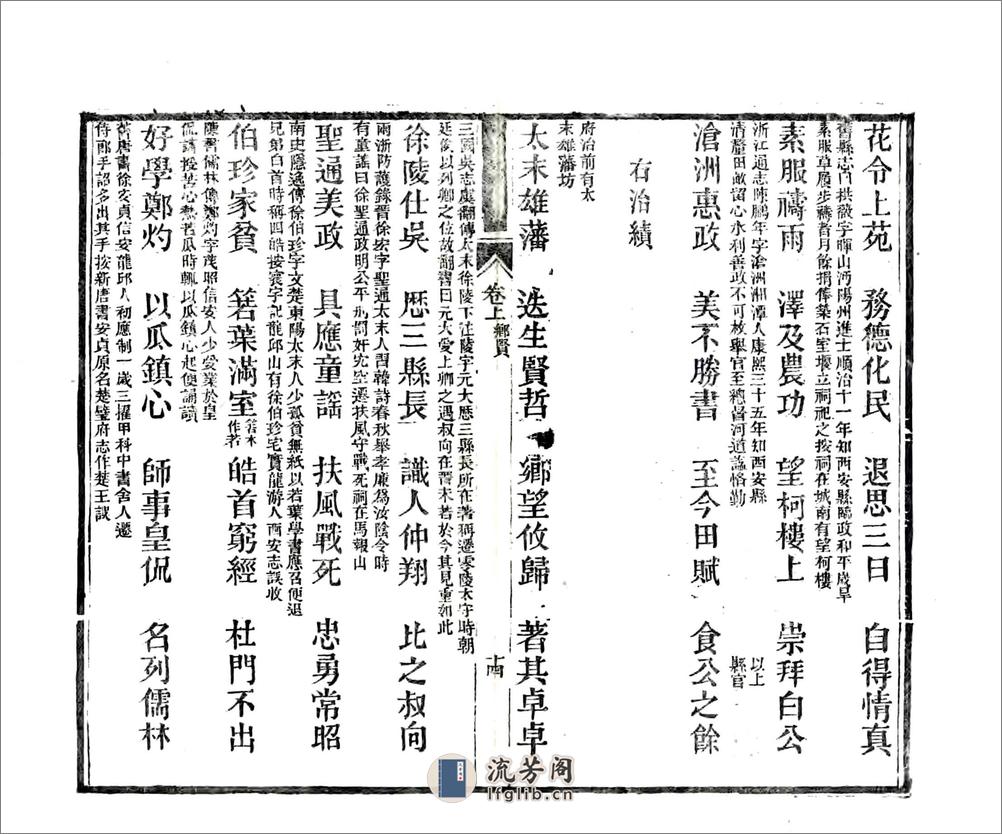 花令上苑 務德化民 退思三日 自得情真
舊縣志白拱薇字暉山沔陽州進士順治十一年知西安縣臨政和平歲旱
素服草履步禱者月餘捐俸築石室堰立祠祀之按祠在城南有望柯樓
素服禱雨 澤及農功 望柯樓上 崇拜白公
浙江通志陳鵬年字滄洲湘潭人康熙三十五年知西安縣
清釐田畝留心水利善政不可枚舉官至總督河道謚恪勤
以上
縣官
滄洲惠政 美不勝書 至今田賦 食公之餘
右治績
府治前有太
末雄藩坊
太末雄藩 迭生賢哲 鄉望攸歸 著其卓卓
卷上 鄉賢
十四
三國吳志虞翻傳太末徐陵下注陵字元大歷三縣長所在著稱遷零陵太守時朝
廷俟以列卿之位故翻書曰元大受上卿之遇叔向在晉未若於今其見重如此
徐陵仕吳 歷三縣長 識人仲翔 比之叔向
兩浙防護錄晉徐宏字聖通太末人習韓詩春秋舉孝廉為汝陰令時
有童謠曰徐聖通政明公平 奸宄空遷扶風守戰死祠在馬報山
聖通美政 具應童謠 扶風戰死 忠勇常昭
南史隱逸傳徐伯珍字文楚東陽太末人少孤貧無紙以若葉學書應召便退
兄弟四白首時稱四皓按寰宇記龍邱山有徐伯珍宅實龍游人西安志誤收
伯珍家貧 箬葉滿室 箬本作若 皓首窮經 杜門不出
陳書儒林傳鄭灼字茂昭信安人少受業於皇
侃講授苦心熱若瓜時輒以瓜鎮心起便誦讀
好學鄭灼 以瓜鎮心 師事皇侃 名列儒林
舊唐書徐安貞信安龍邱人初應制一歲三擢甲科中書舍人遷
侍郎手詔多出其手按新唐書安貞原名楚璧府志作楚王誤
流芳阁
lfglib.cn